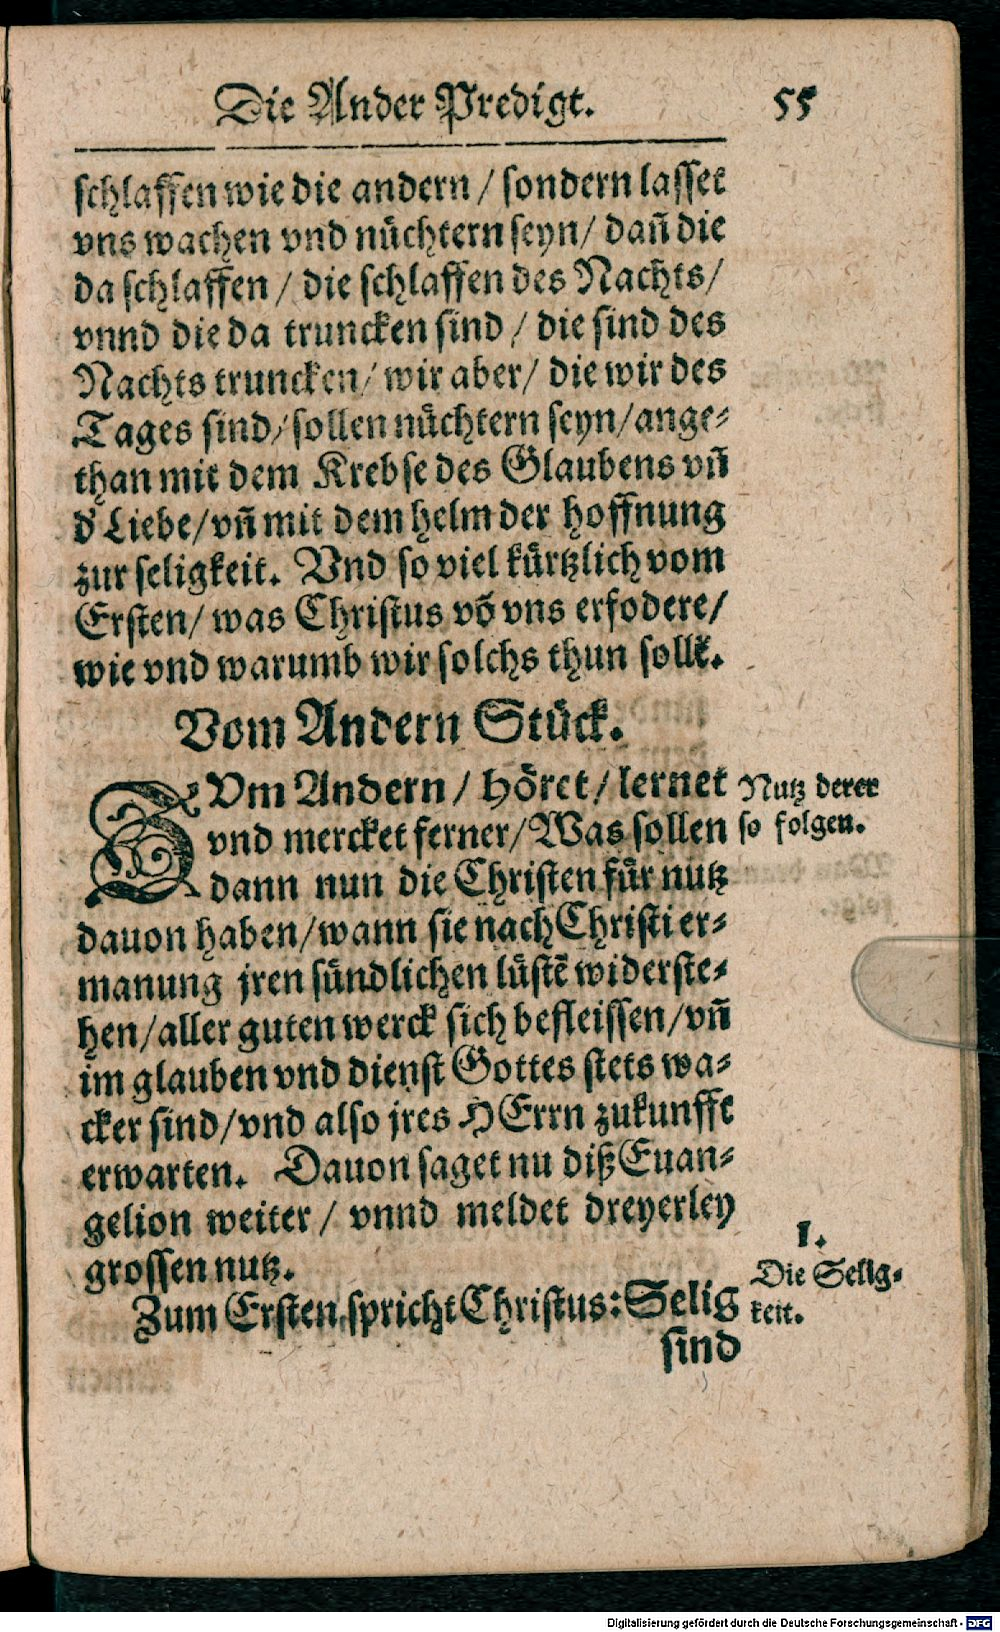 Die Ander Predigt. 55
schlaffen wie die andern / sondern lasset
vns wachen vnd nüchtern seyn / dañ die
da schlaffen / die schlaffen des Nachts /
vnnd die da truncken sind / die sind des
Nachts truncken / wir aber / die wir des
Tages sind / sollen nüchtern seyn / ange⸗
than mit dem Krebse des Glaubens vñ
d' Liebe / vñ mit dem helm der hoffnung
zur seligkeit. Vnd so viel kürtzlich vom
Ersten / was Christus võ vns erfodere /
wie vnd warumb wir solchs thun sollẽ.
Vom Andern Stück.
ZVm Andern / Höret / lernet
vnd mercket ferner / Was sollen
dann nun die Christen für nutz
dauon haben / wann sie nach Christi er⸗
manung jren sündlichen lüstẽ widerste⸗
hen / aller guten werck sich befleissen / vñ
im glauben vnd dienst Gottes stets wa⸗
cker sind / vnd also jres HErrn zukunfft
erwarten. Dauon saget nu diß Euan⸗
gelion weiter / vnnd meldet dreyerley
grossen nutz.
Zum Ersten spricht Christus: Selig
sind
Nutz derer
so folgen.
1.
Die Selig⸗
keit.
Digitalisierung gefördert durch die Deutsche Forschungsgemeinschaft - DFG